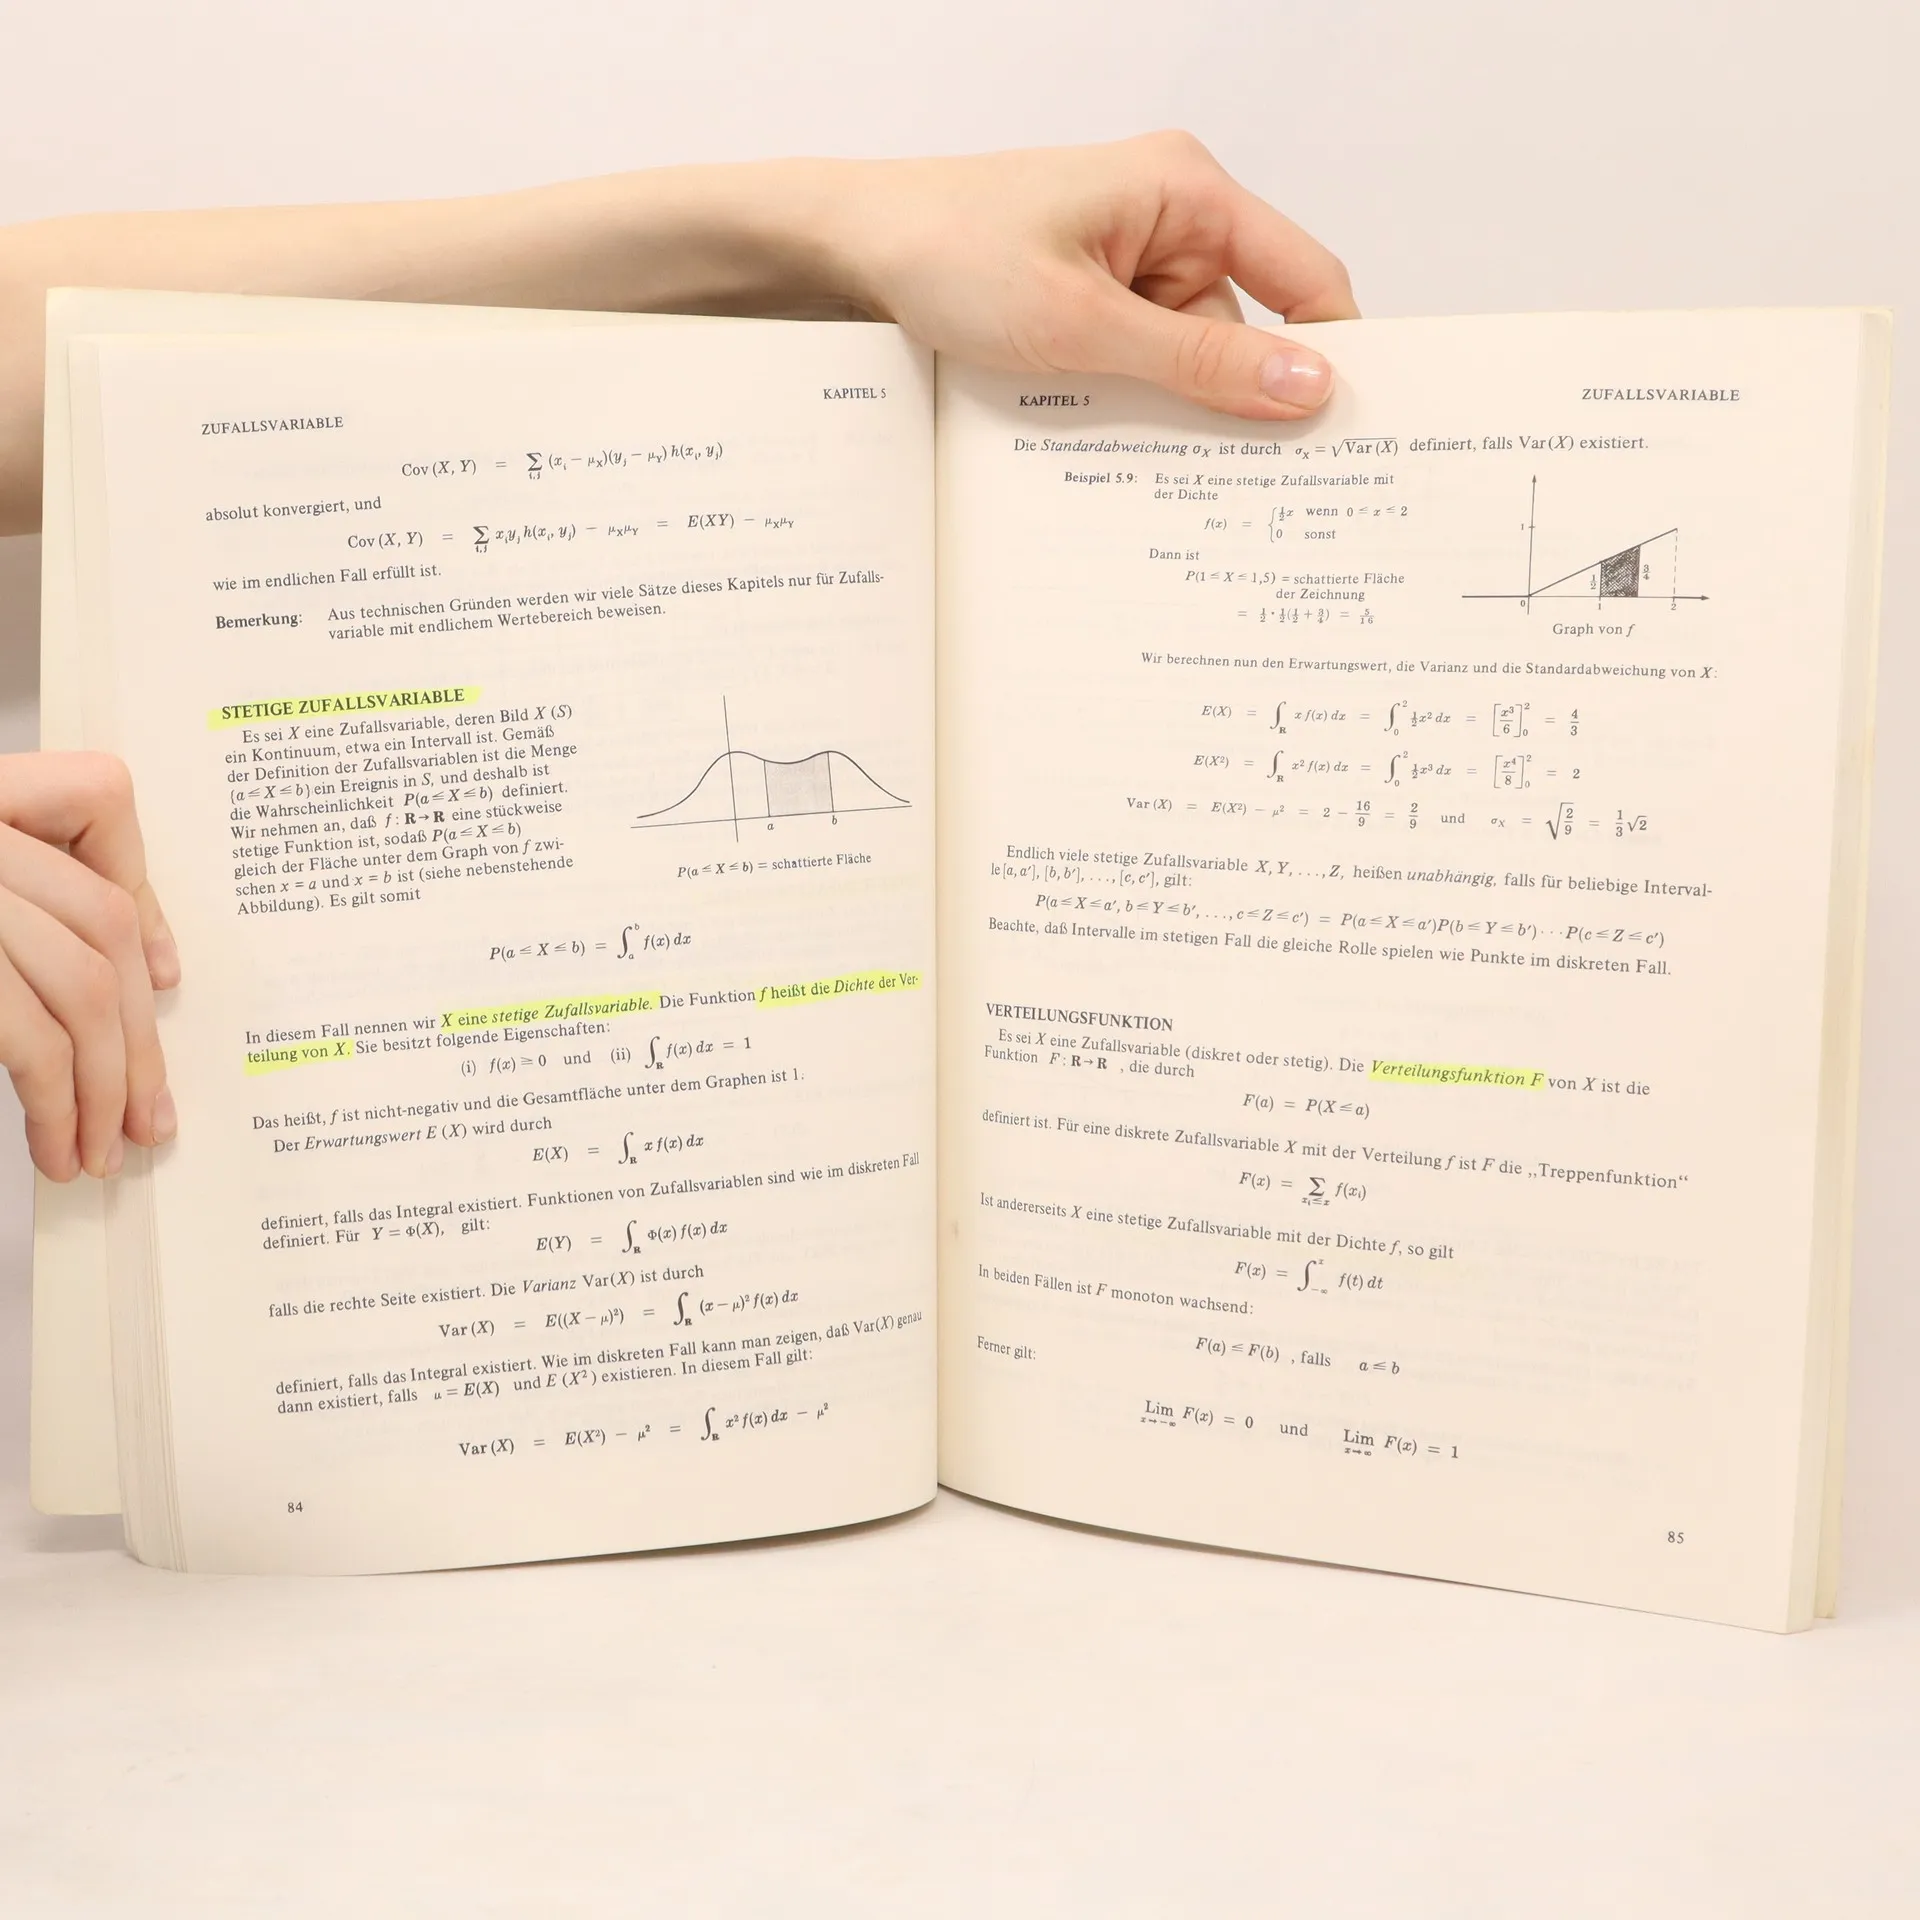 ZUFALLSVARIABLE KAPITEL 5
Cov (X, Y) = ∑i,j (xi − μX)(yj − μY) h(xi, yj)
absolut konvergiert, und
Cov (X, Y) = ∑i,j xiyj h(xi, yj) − μXμY = E(XY) − μXμY
wie im endlichen Fall erfüllt ist.
Bemerkung: Aus technischen Gründen werden wir viele Sätze dieses Kapitels nur für Zufalls-
variable mit endlichem Wertebereich beweisen.
STETIGE ZUFALLSVARIABLE
Es sei X eine Zufallsvariable, deren Bild X (S)
ein Kontinuum, etwa ein Intervall ist. Gemäß
der Definition der Zufallsvariablen ist die Menge
{a ≤ X ≤ b} ein Ereignis in S, und deshalb ist
die Wahrscheinlichkeit P(a ≤ X ≤ b) definiert.
Wir nehmen an, daß f: R→R eine stückweise
stetige Funktion ist, sodaß P(a ≤ X ≤ b)
gleich der Fläche unter dem Graph von f zwi-
schen x = a und x = b ist (siehe nebenstehende
Abbildung). Es gilt somit
a b
P(a ≤ X ≤ b) = schattierte Fläche
P(a ≤ X ≤ b) = ∫ab f(x) dx
In diesem Fall nennen wir X eine stetige Zufallsvariable. Die Funktion f heißt die Dichte der Ver-
teilung von X. Sie besitzt folgende Eigenschaften:
(i) f(x) ≥ 0 und (ii) ∫R f(x) dx = 1
Das heißt, f ist nicht-negativ und die Gesamtfläche unter dem Graphen ist 1.
Der Erwartungswert E (X) wird durch
E(X) = ∫R x f(x) dx
definiert, falls das Integral existiert. Funktionen von Zufallsvariablen sind wie im diskreten Fall
definiert. Für Y = Φ(X), gilt:
E(Y) = ∫R Φ(x) f(x) dx
falls die rechte Seite existiert. Die Varianz Var(X) ist durch
Var (X) = E((X − μ)²) = ∫R (x − μ)² f(x) dx
definiert, falls das Integral existiert. Wie im diskreten Fall kann man zeigen, daß Var(X) genau
dann existiert, falls μ = E(X) und E (X²) existieren. In diesem Fall gilt:
Var (X) = E(X²) − μ² = ∫R x² f(x) dx − μ²
84
KAPITEL 5 ZUFALLSVARIABLE
Die Standardabweichung σX ist durch σX = √Var (X) definiert, falls Var (X) existiert.
Beispiel 5.9: Es sei X eine stetige Zufallsvariable mit
der Dichte
f(x) = { ½x wenn 0 ≤ x ≤ 2
0 sonst
Dann ist
P(1 ≤ X ≤ 1,5) = schattierte Fläche
der Zeichnung
= ½ · ½(½ + ¾) = 5/16
1
½ ¾
0 1 2
Graph von f
Wir berechnen nun den Erwartungswert, die Varianz und die Standardabweichung von X:
E(X) = ∫R x f(x) dx = ∫02 ½x² dx = [x³/6]02 = 4/3
E(X²) = ∫R x² f(x) dx = ∫02 ½x³ dx = [x⁴/8]02 = 2
Var (X) = E(X²) − μ² = 2 − 16/9 = 2/9 und σX = √2/9 = 1/3 √2
Endlich viele stetige Zufallsvariable X, Y, . . ., Z, heißen unabhängig, falls für beliebige Interval-
le [a, a′], [b, b′], . . ., [c, c′], gilt:
P(a ≤ X ≤ a′, b ≤ Y ≤ b′, . . ., c ≤ Z ≤ c′) = P(a ≤ X ≤ a′)P(b ≤ Y ≤ b′) · · · P(c ≤ Z ≤ c′)
Beachte, daß Intervalle im stetigen Fall die gleiche Rolle spielen wie Punkte im diskreten Fall.
VERTEILUNGSFUNKTION
Es sei X eine Zufallsvariable (diskret oder stetig). Die Verteilungsfunktion F von X ist die
Funktion F: R→R , die durch
F(a) = P(X ≤ a)
definiert ist. Für eine diskrete Zufallsvariable X mit der Verteilung f ist F die „Treppenfunktion“
F(x) = ∑xi≤x f(xi)
Ist andererseits X eine stetige Zufallsvariable mit der Dichte f, so gilt
F(x) = ∫−∞x f(t) dt
In beiden Fällen ist F monoton wachsend:
F(a) ≤ F(b) , falls a ≤ b
Ferner gilt:
Lim x→−∞ F(x) = 0 und Lim x→∞ F(x) = 1
85